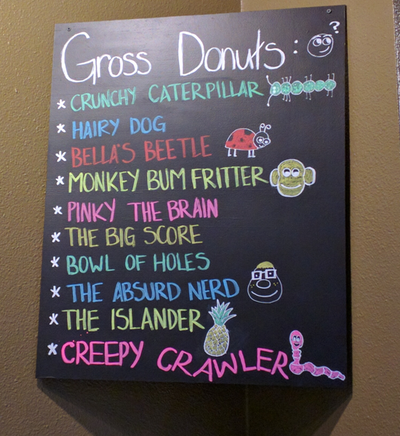 Gross Donuts: ?
* CRUNCHY CATERPILLAR
* HAIRY DOG
* BELLA'S BEETLE
* MONKEY BUM FRITTER
* PINKY THE BRAIN
* THE BIG SCORE
* BOWL OF HOLES
* THE ABSURD NERD
* THE ISLANDER
* CREEPY CRAWLER